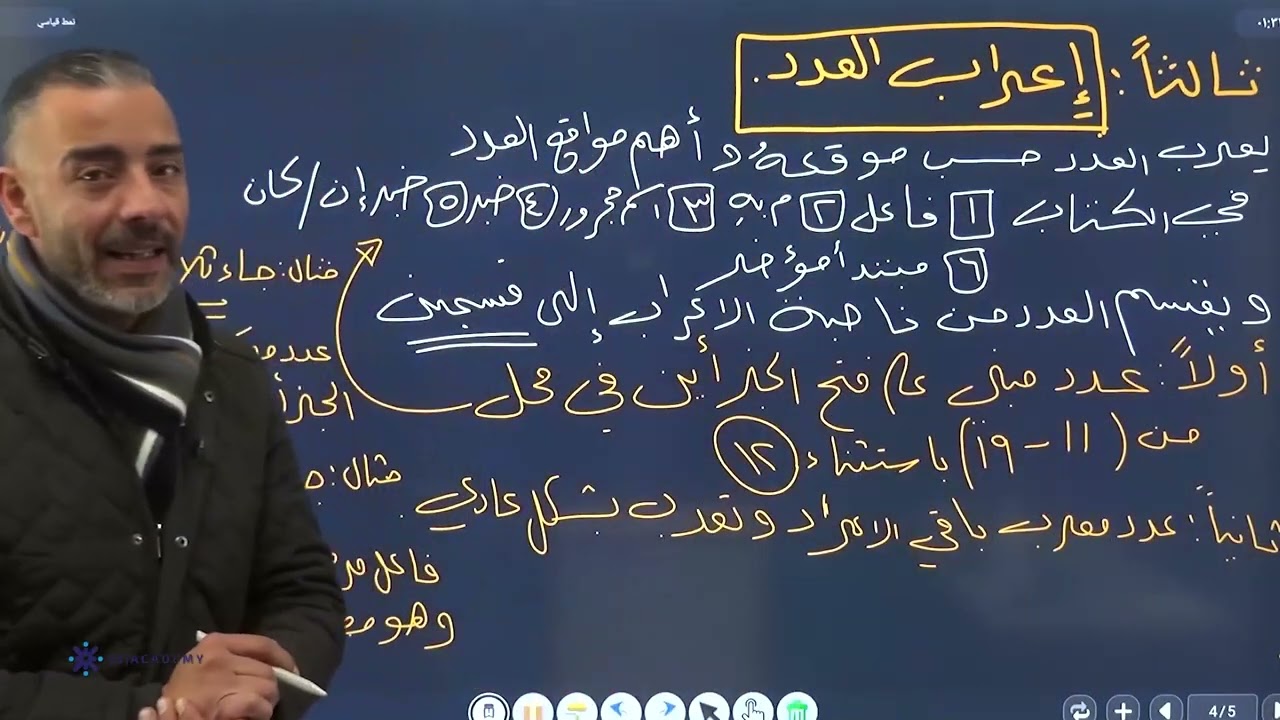 نمط قياسي
ثالثاً: إعراب العدد.
يعرب العدد حسب موقعه و أهم مواقع العدد
في الكتاب ١ فاعل ٢ م به ٣ اسم مجرور ٤ خبر ٥ خبر إن/كان
٦ مبتدأ مؤخر
و يقسم العدد من ناحية الاعراب إلى قسمين
أولاً: عدد مبني على فتح الجزأين في محل
من (١١ - ١٩) باستثناء ١٢
ثانياً: عدد معرب باقي الاعداد وتعرب بشكل عادي
مثال: جاء
عدد
الجزأ
مثال:
فاعل
وهو
ACADEMY
4/5